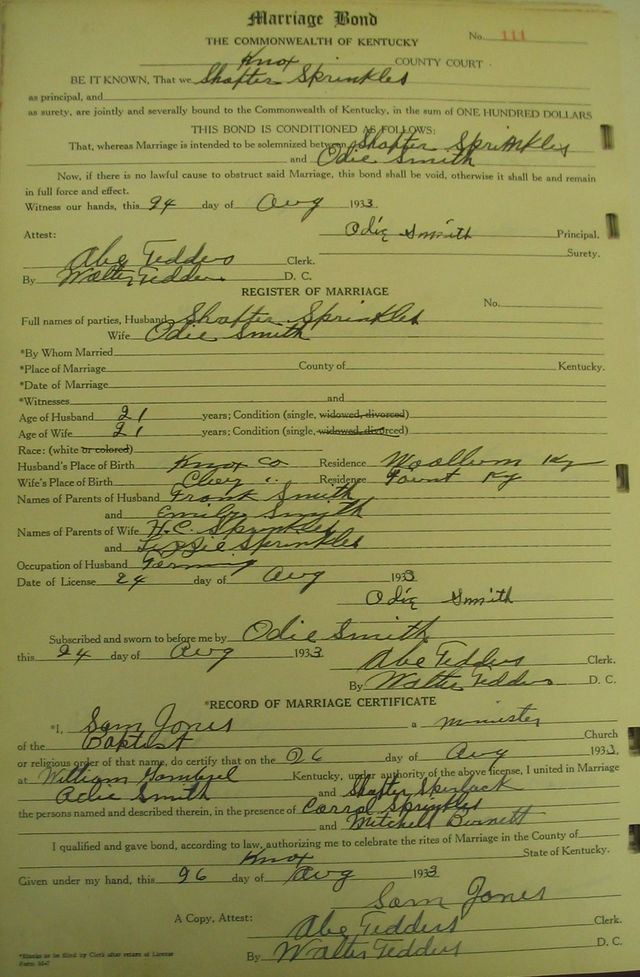 Marriage Bond
THE COMMONWEALTH OF KENTUCKY
No. 111
Knox COUNTY COURT
BE IT KNOWN, That we Shafter Sprinkles
as principal, and
as surety, are jointly and severally bound to the Commonwealth of Kentucky, in the sum of ONE HUNDRED DOLLARS
THIS BOND IS CONDITIONED AS FOLLOWS:
That, whereas Marriage is intended to be solemnized between Shafter Sprinkles
and Odie Smith
Now, if there is no lawful cause to obstruct said Marriage, this bond shall be void, otherwise it shall be and remain
in full force and effect.
Witness our hands, this 24 day of Aug 1933
Attest: Odie Smith Principal.
Abe Tedders Clerk. Surety.
By Walter Tedders D. C.
REGISTER OF MARRIAGE
No.
Full names of parties, Husband Shafter Sprinkles
Wife Odie Smith
*By Whom Married
*Place of Marriage County of Kentucky.
*Date of Marriage
*Witnesses and
Age of Husband 21 years; Condition (single, widowed, divorced)
Age of Wife 21 years; Condition (single, widowed, divorced)
Race: (white or colored)
Husband's Place of Birth Knox Co Residence Woollum Ky
Wife's Place of Birth Clay " Residence Fount Ky
Names of Parents of Husband Frank Smith
and Emily Smith
Names of Parents of Wife H.C. Sprinkles
and Lizzie Sprinkles
Occupation of Husband Ferming
Date of License 24 day of Aug 1933
Odie Smith
Subscribed and sworn to before me by Odie Smith
this 24 day of Aug 1933 Abe Tedders Clerk.
By Walter Tedders D. C.
*RECORD OF MARRIAGE CERTIFICATE
*I, Sam Jones a minister
of the Baptist Church
or religious order of that name, do certify that on the 26 day of Aug 1933,
at William Kentucky, under authority of the above license, I united in Marriage
Odie Smith and Shafter
the persons named and described therein, in the presence of Carrol Sprinkles
and Mitchell Burnett
I qualified and gave bond, according to law, authorizing me to celebrate the rites of Marriage in the County of
Knox State of Kentucky.
Given under my hand, this 26 day of Aug 1933
Sam Jones
A Copy, Attest: Abe Tedders Clerk.
By Walter Tedders D. C.
*Blanks to be filled by Clerk after return of License